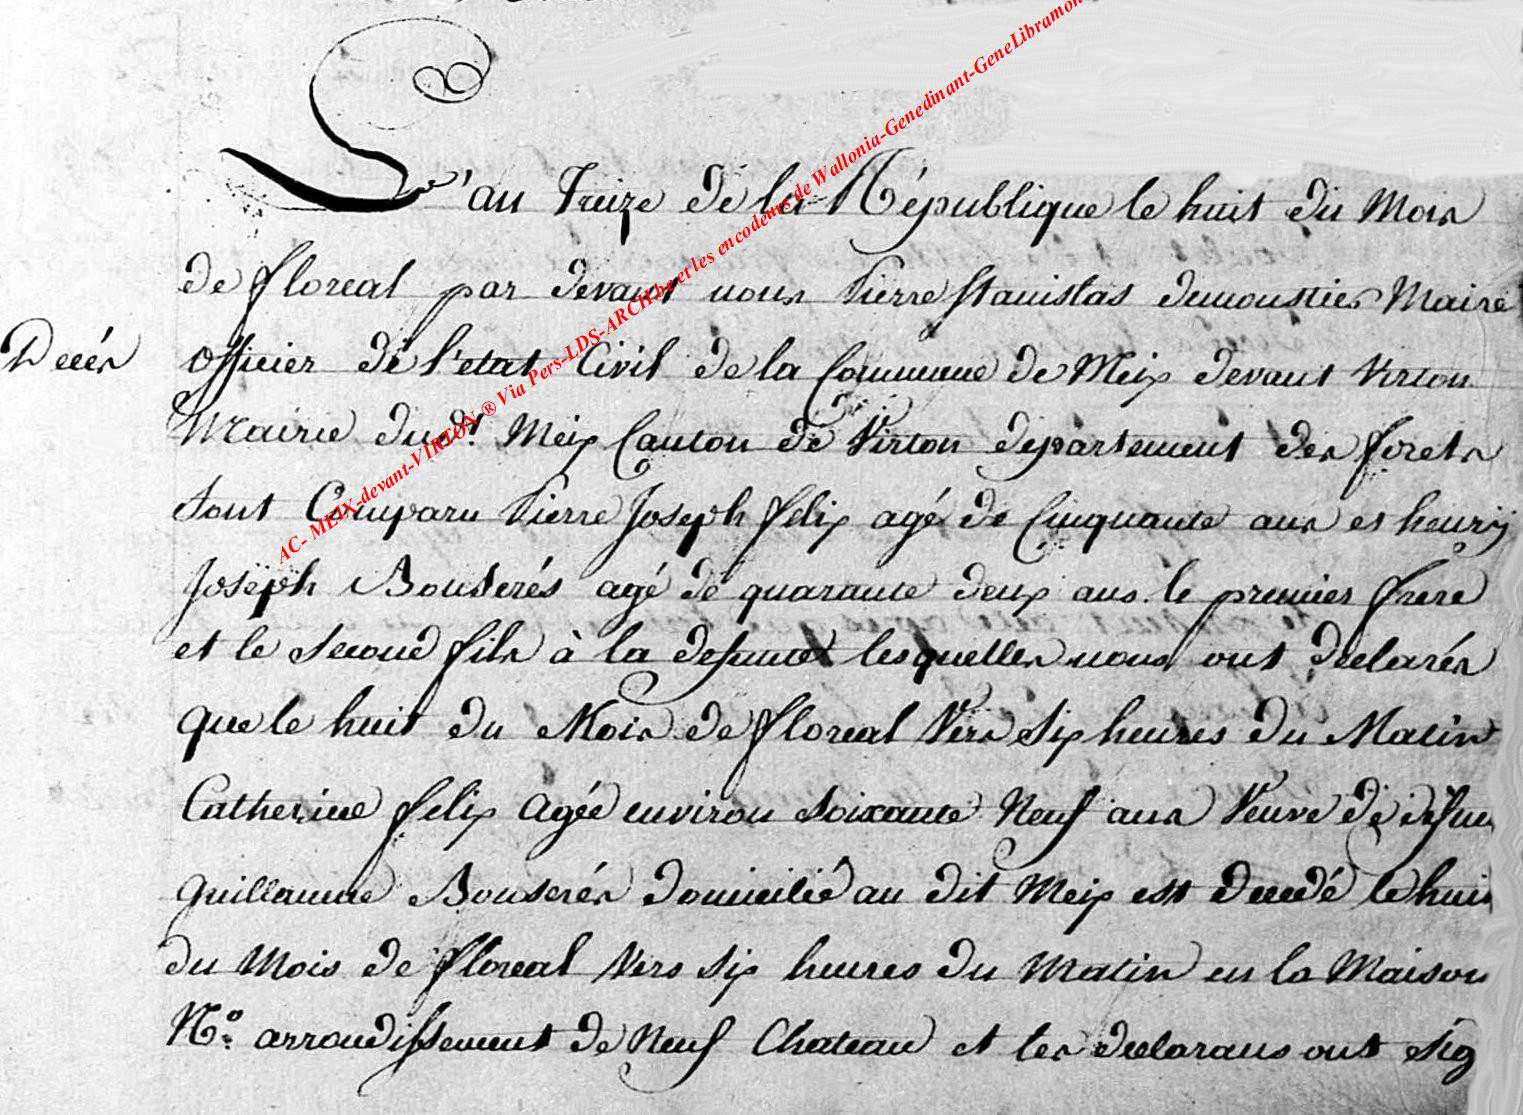 L'an Treize de la République le huit du Mois
de floreal par devant nous Pierre Stanislas demoustier Maire
Decés officier de l'etat Civil de la Commune de Meix devant Virton
Mairie dud.t Meix Canton de Virton departement des forets
sont Comparu Pierre Joseph felix agé de Cinquante ans et henry
Joseph Bouserés agé de quarante deux ans le premier frere
et le second fils à la defunte lesquelles nous ont declarés
que le huit du Mois de floreal Vers Six heures du Matin
Catherine felix agée environ soixante Neuf ans Veuve de
guillaume Bouserés domicilié au dit Meix est Decedé le huit
du Mois de floreal Vers six heures du Matin en la Maison
N.o arrondissement de Neuf Chateau et les declarans ont sig
AC- MEIX-devant-VIRTON ® Via Pers-LDS-ARCH.be et les encodeurs de Wallonia-Genedinant-GeneLibramon